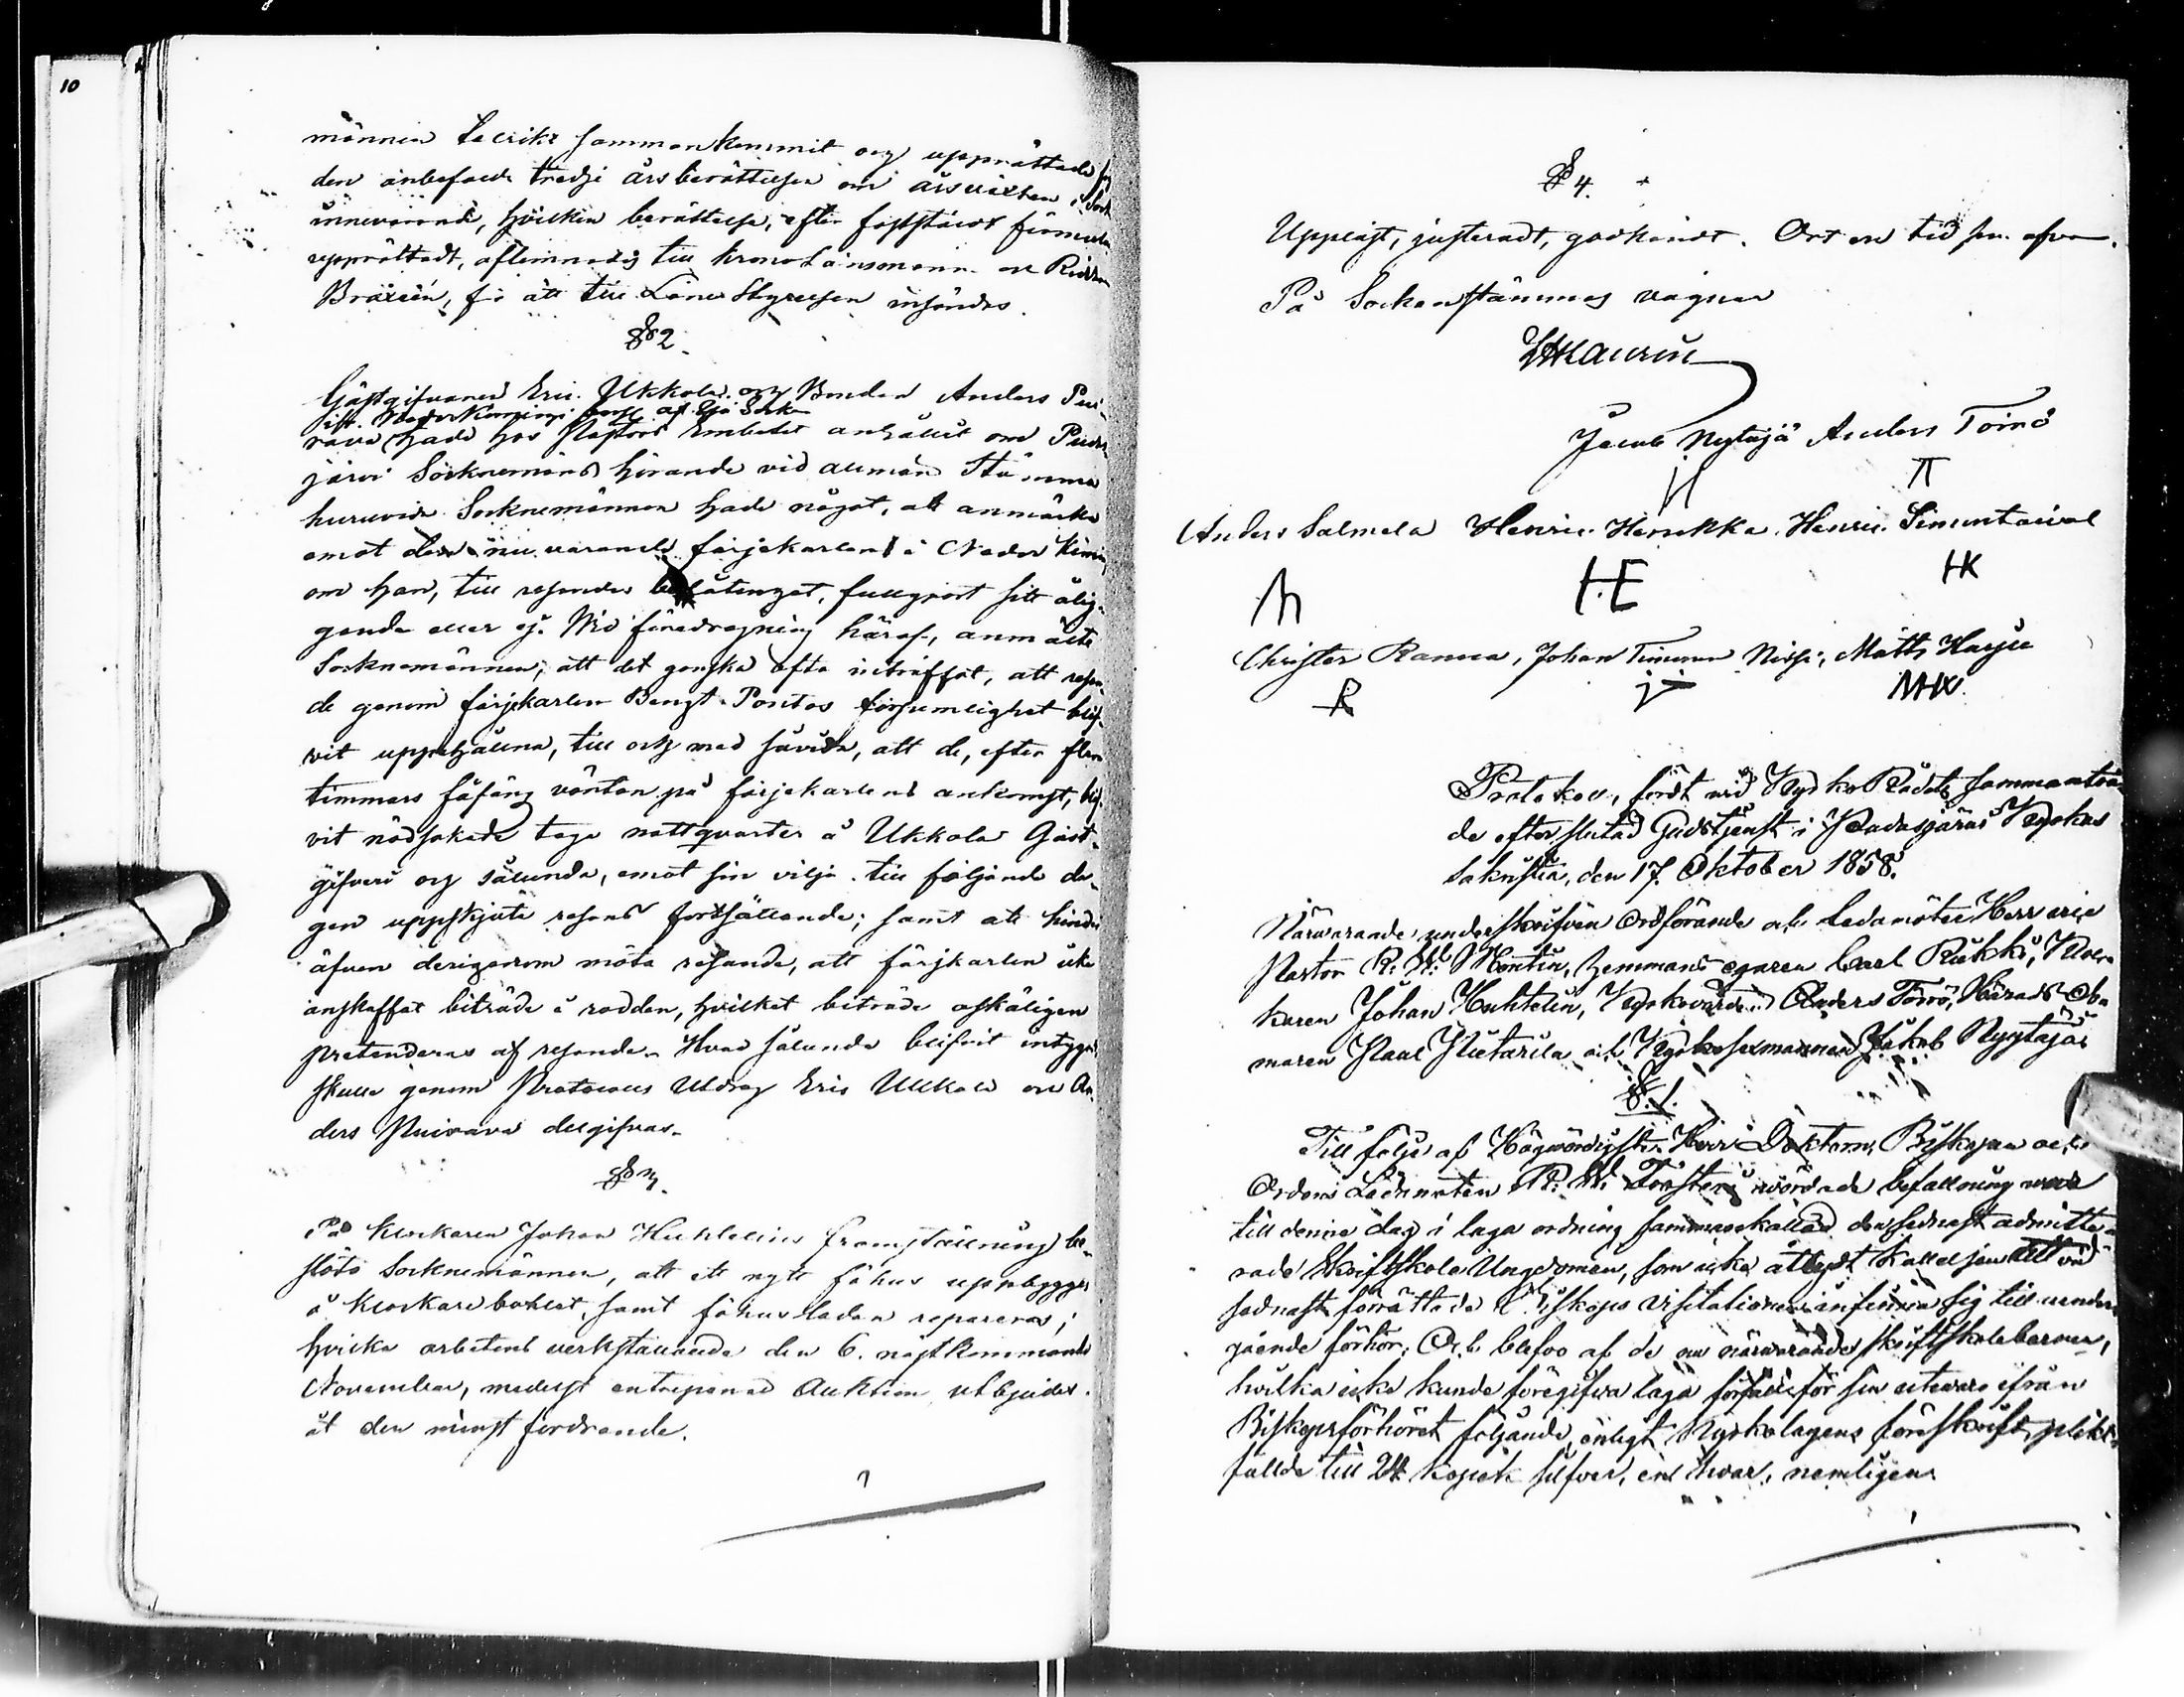 10
männen talrikt sammankommit och upprättade
den anbefalde tredje årsberättelsen om årsväxten i
innevarande, hvilken berättelse, efter faststäldt formulär
upprättadt, aflemnades till Krono Länsmannen och Riddaren
Braxén, för att till Läne Styrelsen insändas.
§ 2.
Gästgifvaren Eric Ukkola och Bonden Anders Pui-
af Sjö Socken
rava hade hos Pastors Embetet anhållit om Pudas-
järvi Socknemäns hörande vid allmän Stämma
huruvida Socknemännen hade något, att anmärka
emot den nu varande färjekarlen i Neder Kimin,
om han, till resandes belåtenhet, fullgjort sitt ålig-
gande eller ej. Wid föredragning häraf, anmälte
Socknemännen, att det ganska ofta inträffat, att resan-
de genom färjkarlen Bengt Pontos försumlighet blif-
vit uppehållna, till och med så vida, att de, efter flere
timmars fåfäng väntan på färjekarlens ankomst, blif-
vit nödsakade taga nattqvarter å Ukkola Gäst-
gifveri och sålunda, emot sin vilja till följande da-
gen uppskjuta resans fortsättande; samt att hinder
äfven derigenom möta resande, att färjkarlen icke
anskaffat biträde i rodden, hvilket biträde oskäligen
pretenderas af resande. Hvad sålunda blifvit intygadt
skulle genom Protocolls Utdrag Eric Ukkola och An-
ders Puirava delgifvas.
§ 3.
På Klockaren Johan Huhtelins framställning be-
slöto Socknemännen, att ett nytt fähus uppbygges
å Klockarebohlet, samt fähusladan repareras;
hvilka arbetens verkställande den 6. nästkommande
November, medelst entreprenad Auktion utbjudes
åt den minst fordrande.
§ 4.
Uppläst, justeradt, godkändt. Ort och tid som ofvan.
På Sockenstämmas vägnar
Jacob Nytajä Anders Törrö
Anders Salmela Henric Henekka Henric Simuntaival
HE HK
Christer Ranua, Johan Timonen Nissi, Matts Harju
R
Protokoll, fördt vid Kyrko Rådets sammanträ-
de efter slutad Gudstjenst i Pudasjärvi Kyrkas
Sakristia, den 17. Oktober 1858.
Närvarande underskrifven Ordförande och Ledamöter Herr vice
Pastor R. W. Montin, hemmans egaren Carl Riekki, Kloc-
karen Johan Huhtelin, Kyrkovärden Anders Törrö, Härads Do-
maren Paul Pietarila och Kyrkosexmannen Jakob Nyytäjä
§. 1.
Till följe af Högvördigste Herr Doktorn, Biskopen och
Ordens Ledamoten R. W. Frosterus vördade befallning voro
till denne dag i laga ordning sammankallad den sednast admitte-
rade Skriftskole Ungdomen, som icke åtlydt kallelsen att vid
sednast förrättade Biskops visitationen infinna sig till under-
gående förhör. Och blefvo af de nu närvarande skriftskolebarnen,
hvilka icke kunde föregifva laga förfall för sin uteva ro ifrån
Biskopsförhöret följande, enligt Kyrkolagens föreskrift, plikt-
fällde till 24 kopek silfver, en hvar, nemligen